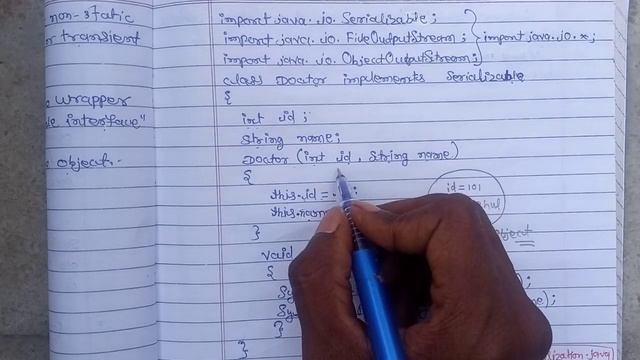 non-static
transient
wrapper
interface"
object.
import java.io.Serializable;
import java.io.FileOutputStream; } import java.io.*;
import java.io.ObjectOutputStream;
class Doctor implements Serializable
{
int id;
String name;
Doctor (int id, String name)
{
this.id =
this.nam
}
void
{
Sy
Sy
}
}
id = 101
hul
object
ization.java